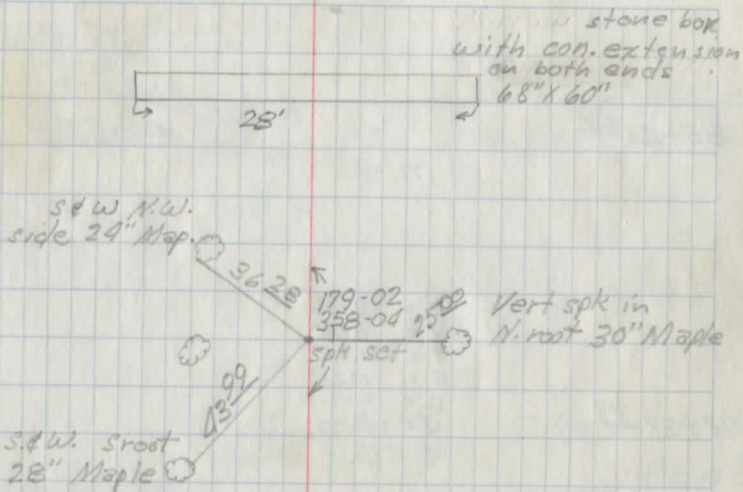 stone box
with con. extension
on both ends
68" X 60"
28'
S & W N.W.
side 24" Map.
36 28
179-02
358-04
25 00
Vert spk in
N. root 30" Maple
spk set
43 99
S. & W. S root
28" Maple